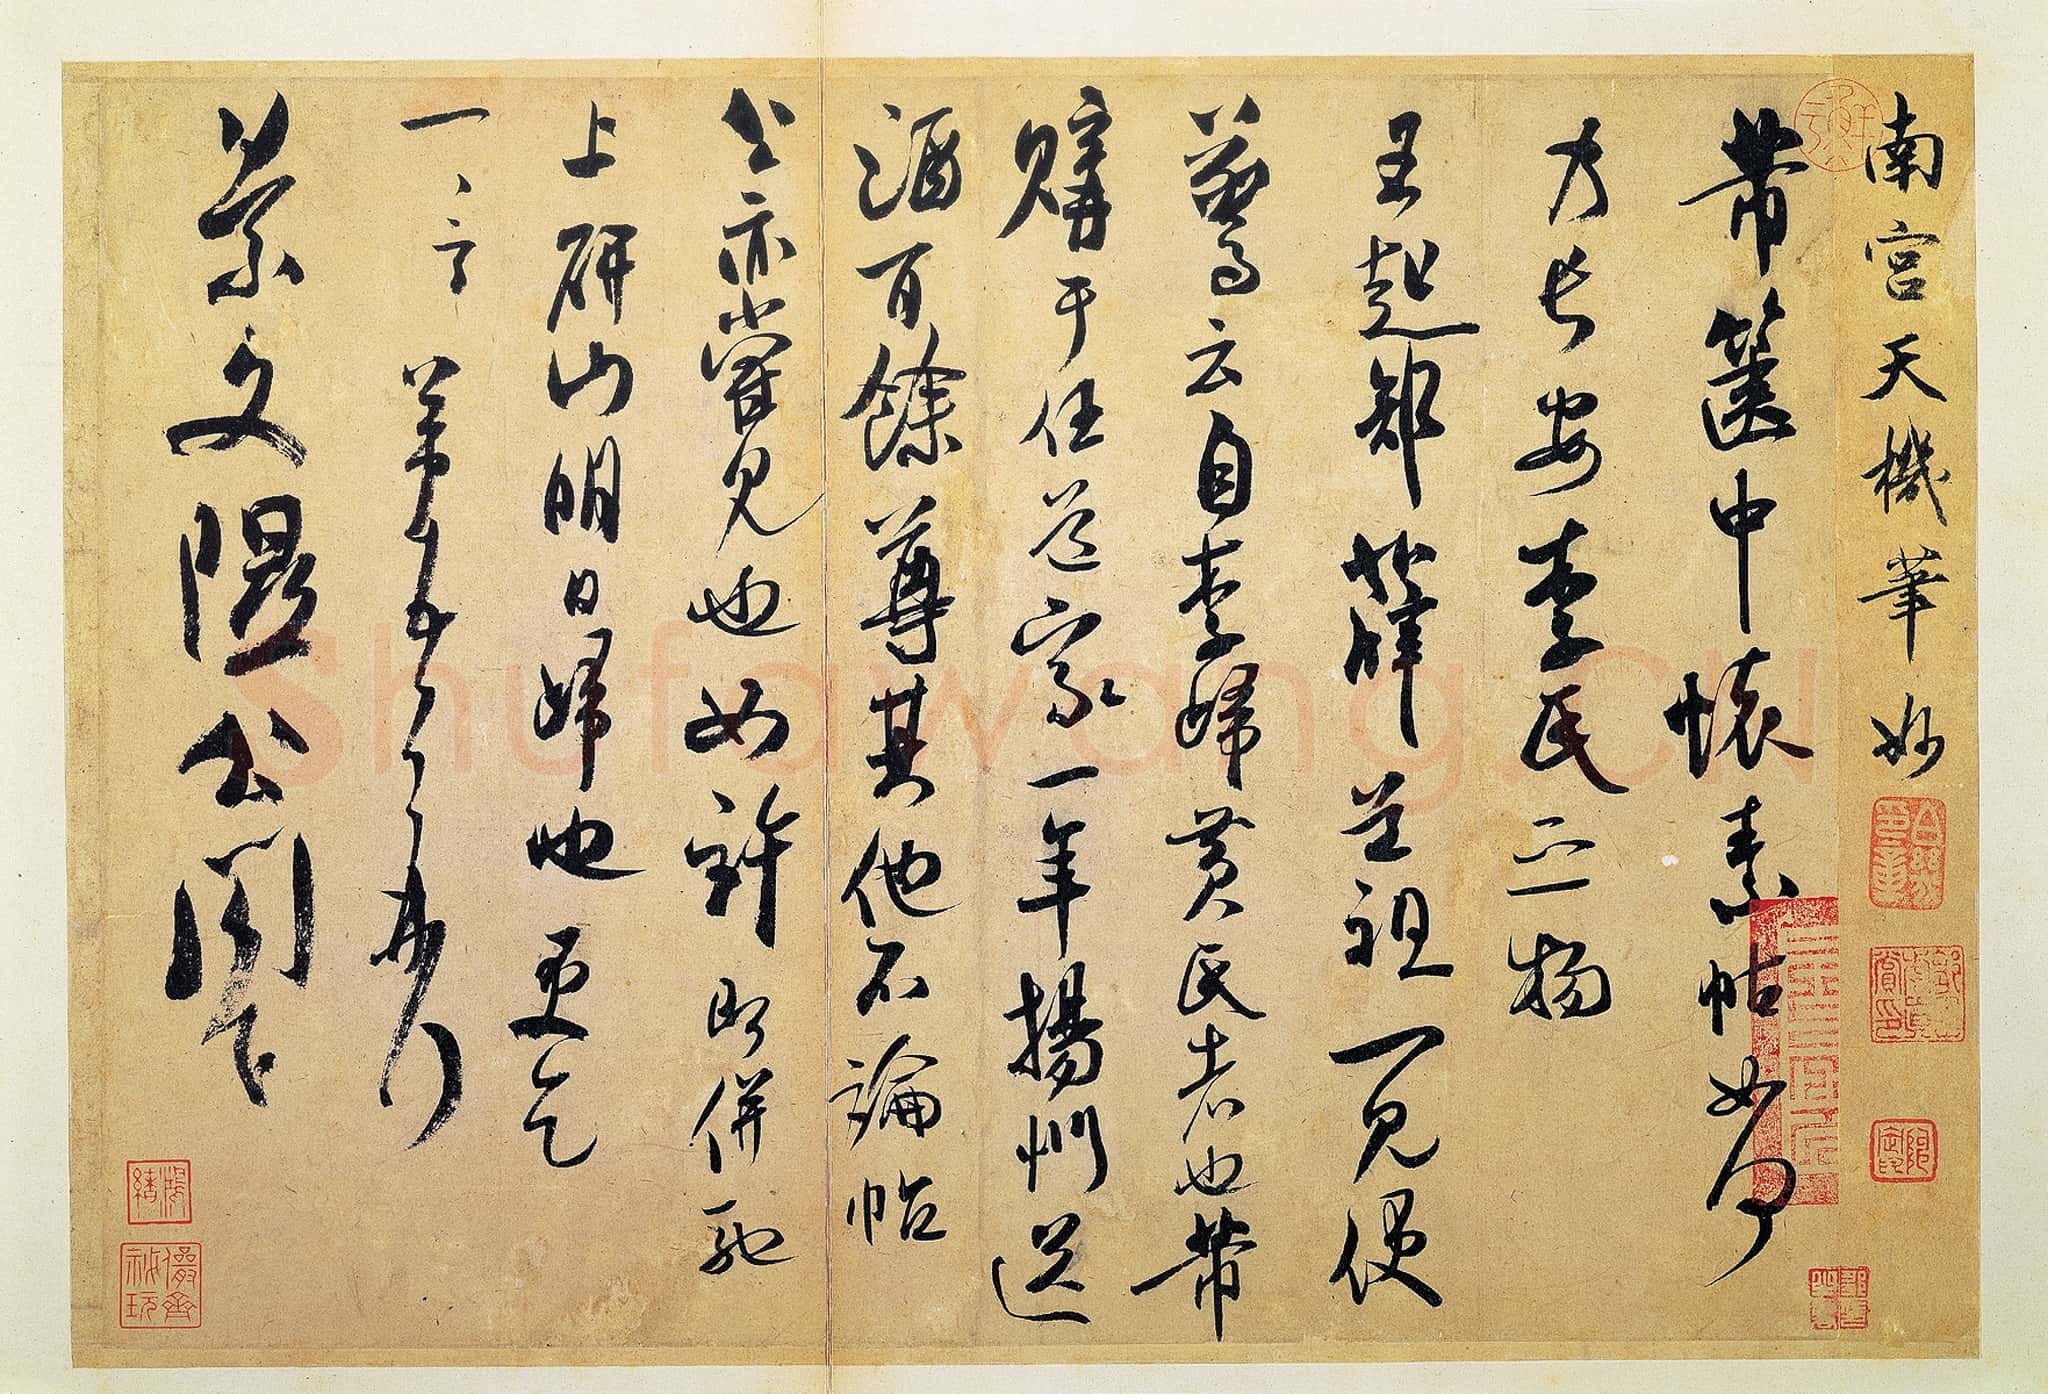 南宮天機筆妙
芾篋中懷素帖如何
乃長安李氏之物
王起部薛道祖一見便
驚云自李歸黃氏者也芾
購于任道家一年揚州送
酒百餘尊其他不論帖
公亦嘗見也如許即併馳
上研山明日歸也更乞
一言 芾頓首再拜
景文隰公閣下
儼齋秘玩
Shufawang.CN